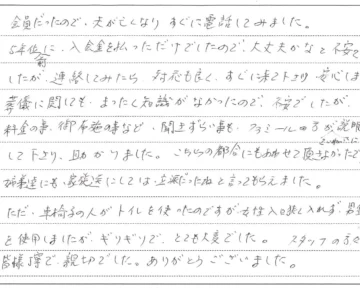 会員だったので、夫が亡くなり すぐに電話してみました。
5年位前に、入会金を払っただけでしたので、大丈夫かなと不安で
したが、連絡してみたら 対応も良く、すぐに来て下さり 安心しま
葬儀に関しても、まったく知識がなかったので、不安でしたが、
料金の事、御布施の事など、聞きずらい事も、ファミールの方が説明
して下さり、助かりました。こちらの都合にもあわせて頂きながらで
姉妹達にも、家族葬にしては立派だったねと言ってもらえました。
ただ、車椅子の人がトイレを使ったのですが女性入口が狭し入れず、男
を使用しましたが、ギリギリで、とても大変でした。 スタッフの方
皆様丁寧で、親切でした。ありがとうございました。